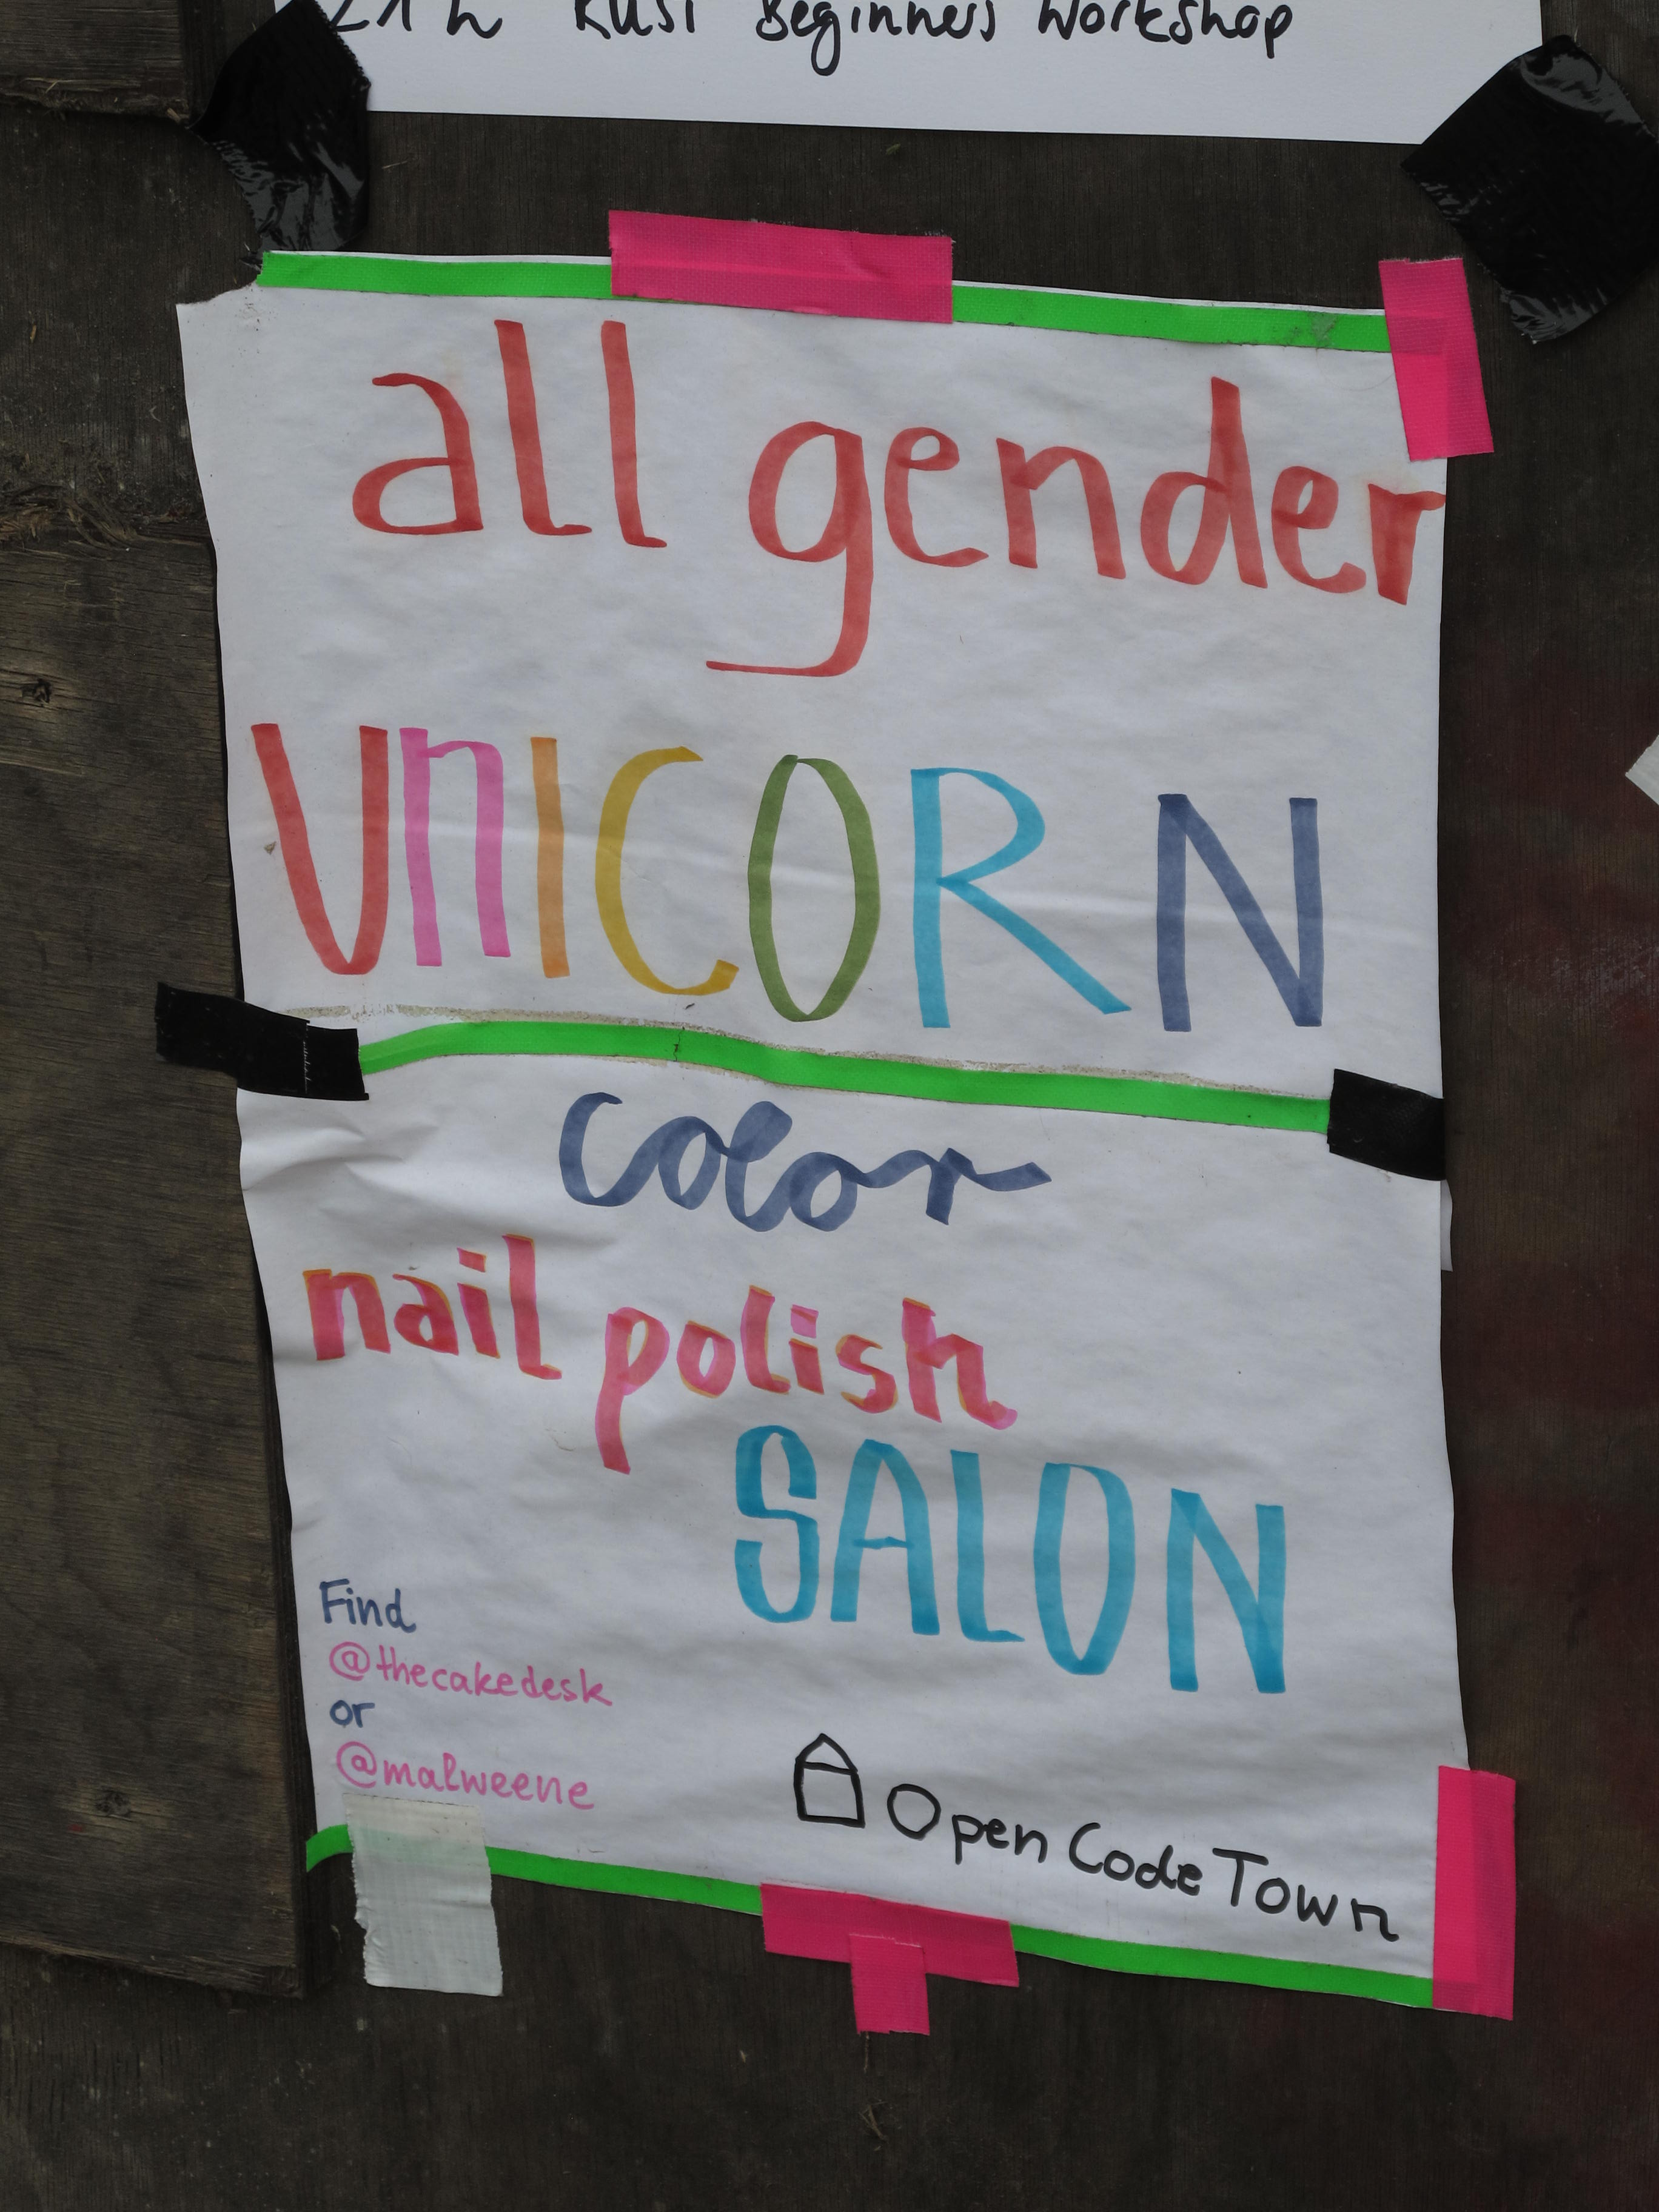 21 h Rust Beginners Workshop
all gender
UnICORN
color
nail polish
SALON
Find
@thecakedesk
or
@malweene
Open Code Town